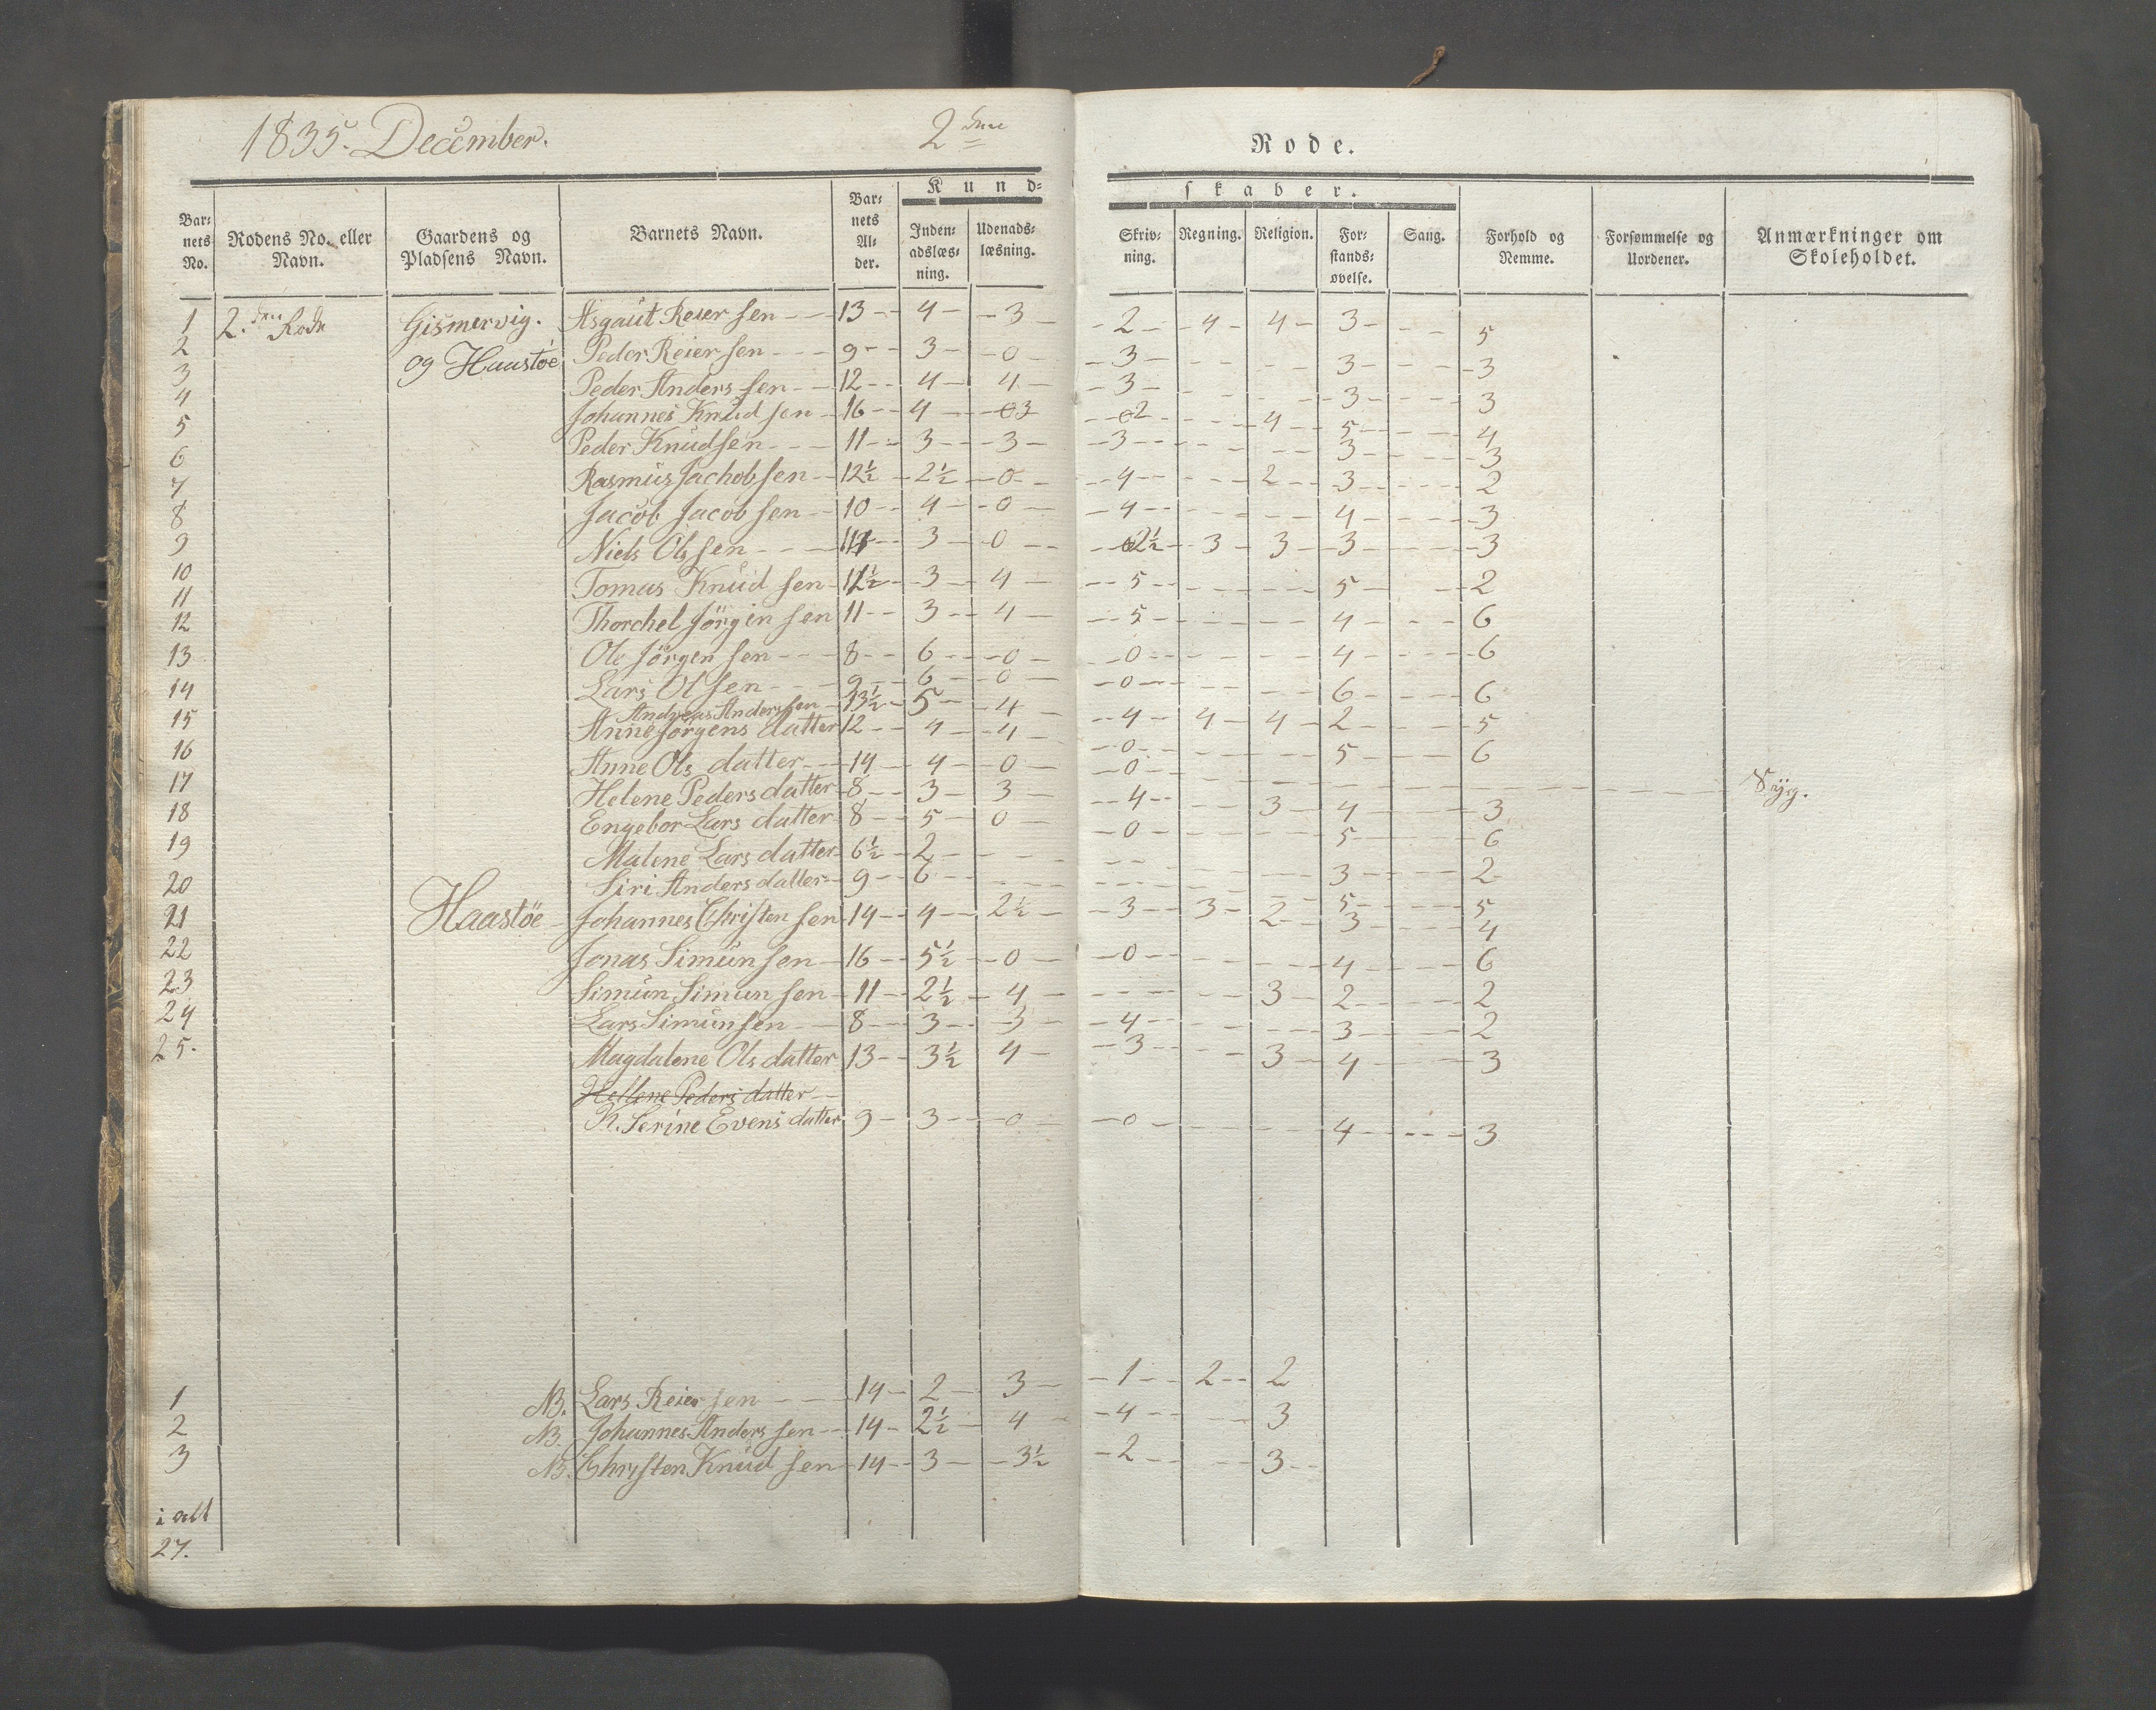 1835. December.
2den
Rode.
Kund-
skaber.
Bar-nets No.
Rodens No. eller Navn.
Gaardens og Pladsens Navn.
Barnets Navn.
Bar-nets Al-der.
Inden-adslæs-ning.
Udenads-læsning.
Skriv-ning.
Regning.
Religion.
For-stands-øvelse.
Sang.
Forhold og Nemme.
Forsømmelse og Uordener.
Anmærkninger om Skoleholdet.
1 2.den Rode Gismervig. Asgaut Reiersen 13 4 3 2 4 4 3 5
2 og Haastöe Peder Reiersen 9 3 0 3 3 3
3 Peder Anderssen 12 4 4 3 3 3
4 Johannes Knudsen 16 4 03 02 4 5 4
5 Peder Knudsen 11 3 3 3 3 3
6 Rasmus Jachobsen 12½ 2½ 0 4 2 3 2
7 Jacob Jacobsen 10 4 0 4 4 3
8 Niels Olssen 3 0 2½ 3 3 3 3
9 Tomas Knudsen 12½ 3 4 5 5 2
10 Thorchel Jörginsen 11 3 4 5 4 6
11 Ole Jörgensen 8 6 0 0 4 6
12 Lars Olsen 9 6 0 0 6 6
13 Andreas Anderssen 13½ 5 4 4 4 4 2 5
14 Anne Jörgens datter 12 4 4 0 5 6
15 Anne Ols datter 14 4 0 0 Syg.
16 Helene Peders datter 8 3 3 4 3 4 3
17 Engebor Lars datter 8 5 0 0 5 6
18 Malene Lars datter 6½ 2 3 2
19 Siri Anders datter 9 6 5 5
20 Haastöe Johannes Christensen 14 4 2½ 3 3 2 3 4
21 Jonas Simunsen 16 5½ 0 0 4 6
22 Simun Simunsen 11 2½ 4 3 2 2
23 Lars Simunsen 8 3 3 4 3 2
24 Magdalene Ols datter 13 3½ 4 3 3 4 3
Hellene Peders datter
25. K. Serine Evens datter 9 3 0 0 4 3
1 NB. Lars Reiersen 14 2 3 1 2 2
2 NB. Johannes Anderssen 14 2½ 4 4 3
3 NB. Christen Knudsen 14 3 3½ 2 3
i alt
27.